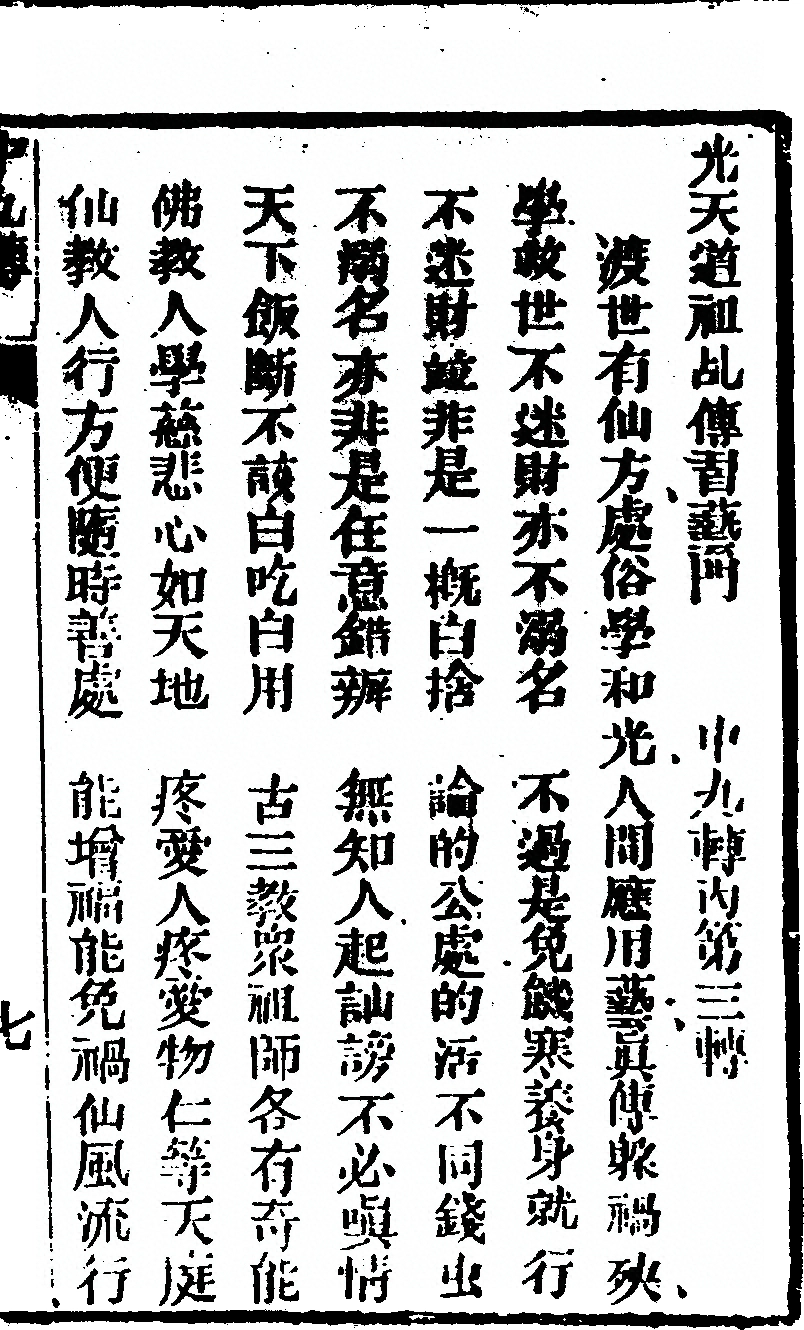 光天道祖乩傳習藝門　中九轉內第三轉
渡世有仙方處俗學和光人間應用藝眞傳躲禍殃
學救世不迷財亦不溺名　不過是免饑寒養身就行
不迷財並非是一概白捨　論的公處的活不同錢虫
不溺名亦非是任意錯辦　無知人起訕謗不必嗔情
天下飯斷不該白吃白用　古三教衆祖師各有奇能
佛教人學慈悲心如天地　疼愛人疼愛物仁等天庭
仙教人行方便隨時善處　能增福能免禍仙風流行
中九轉
七